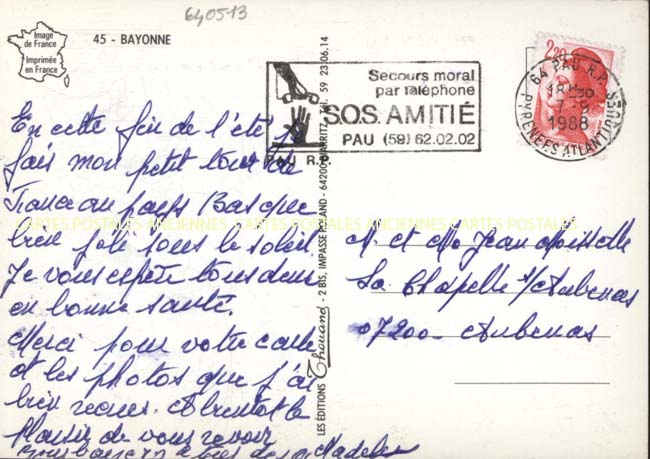 640513
Image
de France
Imprimée
en France
45 - BAYONNE
Secours moral
par téléphone
S.O.S. AMITIÉ
PAU (59) 62.02.02
PAU R.P.
2,20
64 PAU R.P.
18H30
7-9
1988
PYRENEES ATLANTIQUES
LES ÉDITIONS Thouand - 2 BIS, IMPASSE - 64200 BIARRITZ - Tél. 59 23.06.14
CARTES POSTALES ANCIENNES CARTES POSTALES ANCIENNES CARTES POSTALES
En cette fin de l'été je
fais mon petit tour de
France au pays Basque
bien joli sous le soleil.
Je vous espère tous deux
en bonne santé.
Merci pour votre carte
et les photos que j'ai
bien reçues. A bientôt le
Plaisir de vous revoir
Madeleine
M. et Me Jean
La Chapelle s/Aubenas
07200 Aubenas